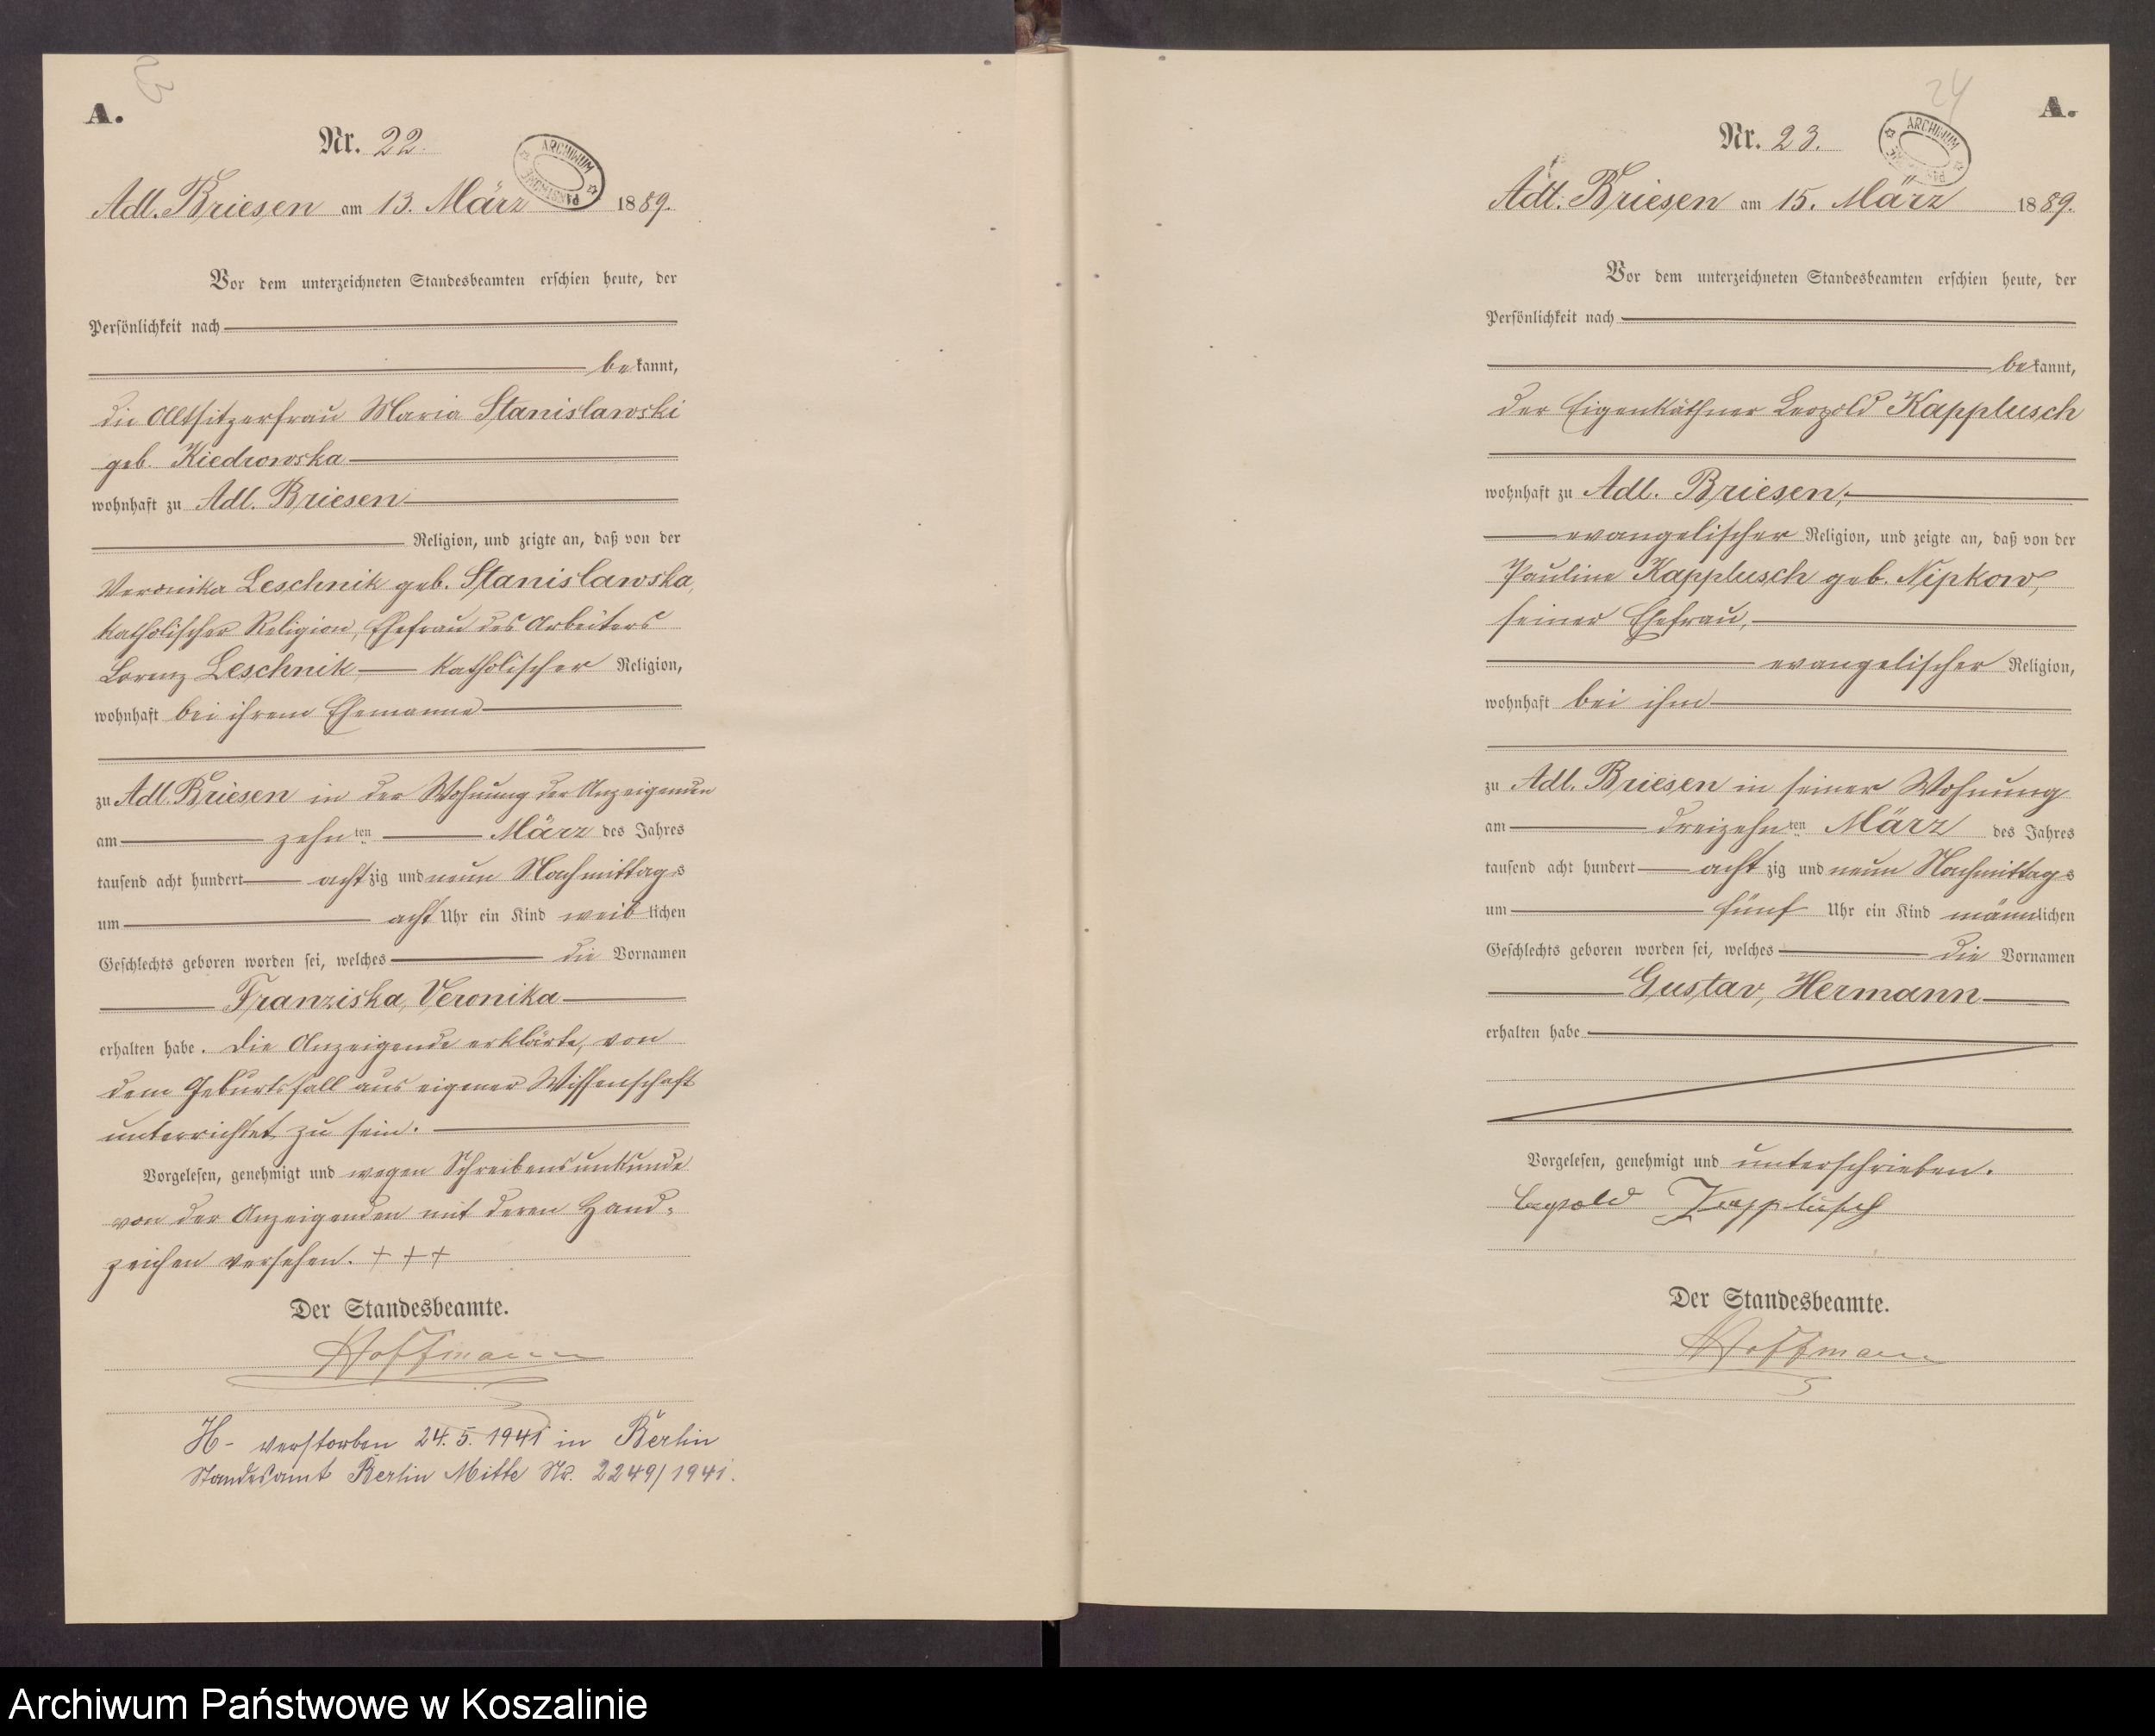 23
A.
Nr. 22.
ARCHIWUM PAŃSTWOWE
Adl. Briesen am 13. März 1889.
Vor dem unterzeichneten Standesbeamten erschien heute, der
Persönlichkeit nach
bekannt,
die Altsitzerfrau Maria Stanislawski
geb. Kiedrowska
wohnhaft zu Adl. Briesen
Religion, und zeigte an, daß von der
Veronika Leschnik geb. Stanislawska,
katholischer Religion, Ehefrau des Arbeiters
Lorenz Leschnik katholischer Religion,
wohnhaft bei ihrem Ehemanne
zu Adl. Briesen in der Wohnung der Anzeigenden
am zehnten März des Jahres
tausend acht hundert achtzig und neun Nachmittags
um acht Uhr ein Kind weiblichen
Geschlechts geboren worden sei, welches die Vornamen
Franziska, Veronika
erhalten habe. Die Anzeigende erklärte, von
dem Geburtsfall aus eigener Wissenschaft
unterrichtet zu sein.
Vorgelesen, genehmigt und wegen Schreibensunkunde
von der Anzeigenden mit deren Hand-
zeichen versehen. + + +
Der Standesbeamte.
Hoffmann
H- verstorben 24.5.1941 in Berlin
Standesamt Berlin Mitte Nr. 2249/1941.
24
A.
Nr. 23.
ARCHIWUM PAŃSTWOWE
Adl. Briesen am 15. März 1889.
Vor dem unterzeichneten Standesbeamten erschien heute, der
Persönlichkeit nach
bekannt,
der Eigenkäthner Leopold Kapplusch
wohnhaft zu Adl. Briesen,
evangelischer Religion, und zeigte an, daß von der
Pauline Kapplusch geb. Nipkow,
seiner Ehefrau,
evangelischer Religion,
wohnhaft bei ihm
zu Adl. Briesen in seiner Wohnung
am dreizehnten März des Jahres
tausend acht hundert achtzig und neun Nachmittags
um fünf Uhr ein Kind männlichen
Geschlechts geboren worden sei, welches die Vornamen
Gustav, Hermann
erhalten habe
Vorgelesen, genehmigt und unterschrieben.
Leopold Kapplusch
Der Standesbeamte.
Hoffmann
Archiwum Państwowe w Koszalinie